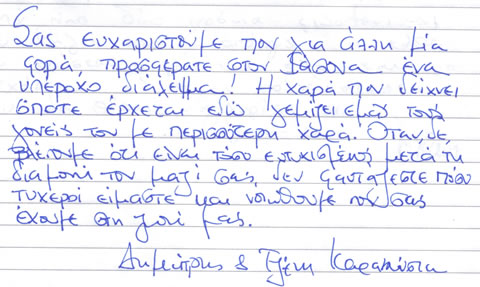 Σας ευχαριστούμε που για άλλη μία
φορά, προσφέρατε στον Ιάσονα ένα
υπέροχο διάλειμμα! Η χαρά που δείχνει
όποτε έρχεται εδώ γεμίζει εμάς τους
γονείς του με περισσότερη χαρά! Όταν, δε,
βλέπουμε ότι είναι τόσο ευτυχισμένος μετά τη
διαμονή του μαζί σας, δεν φαντάζεστε πόσο
τυχεροί είμαστε και νοιώθουμε που σας
έχουμε στη ζωή μας.
Δημήτρης & Ελένη